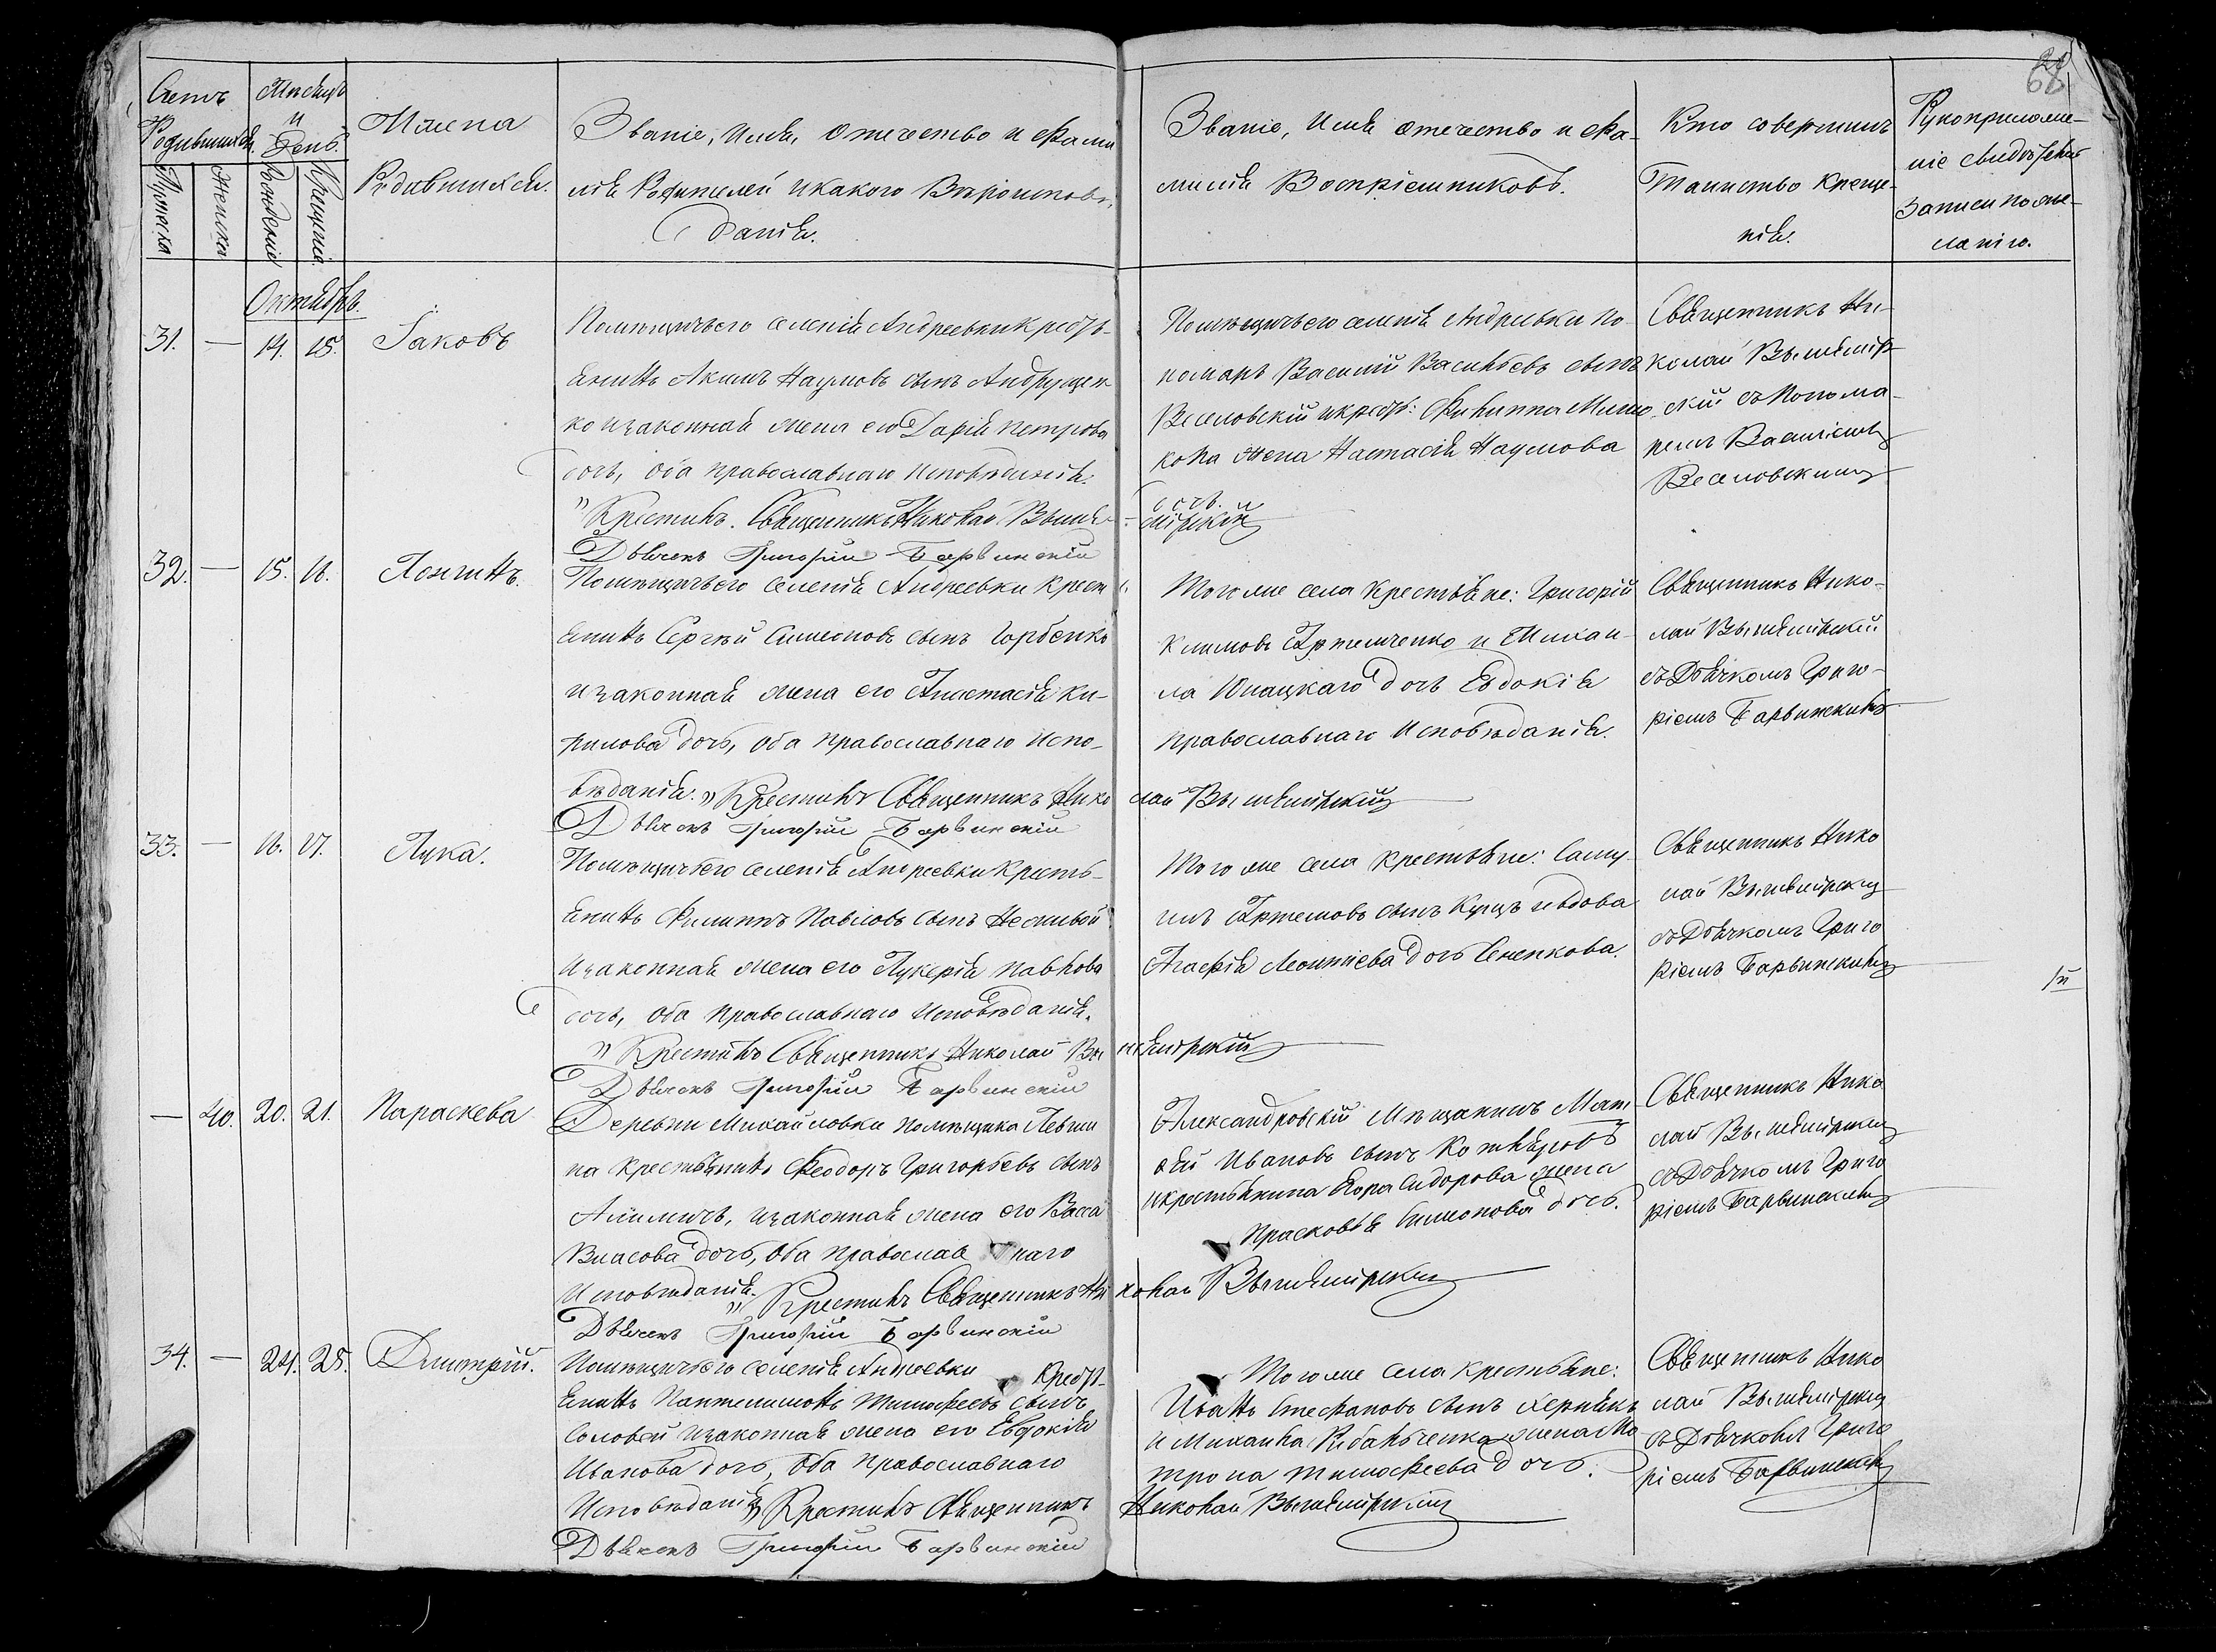 68
Счетъ
Родившихся.
Мѣсяцъ
и
День.
Имена
Родившихся.
Званіе, Имя, отечество и Фами
лія Родителей и какого Вѣроиспове,
данія.
Званіе, Имя отечество и Фа-
милія Воспріемниковъ.
Кто совершилъ
Таинство Креще-
нія.
Рукоприкладство
записи по же-
ланію.
Мужеска
Женска
Рожденія
Крещенія.
Октябрь.
31. — 14. 15. Іаковъ
Помѣщичьего селенія Андреевки кресть-
янинъ Акимъ Наумовъ сынъ Андрущен
ко и законная жена его Дарія Петрова
дочь, оба православнаго исповѣданія.
" Крестилъ. Священникъ Николай Вышне-
мірскій
Дьячекъ Григорій Барвинскій
Помѣщичьего селенія Андреевки по-
номарь Василій Васильевъ сынъ
Веселовскій и крестьян: Филиппа Мишо
кона жена Настасія Наумова
дочь.
Священникъ Ни-
колай Вышемір
скій съ Понома-
ремъ Василіемъ
Веселовскимъ
32. — 15. 16. Лонгинъ.
Помѣщичьего селенія Андреевки крест
янинъ Сергѣй Симеоновъ сынъ Горбенко
и законная жена его Анастасія Ки-
рилова дочь, оба православнаго испо-
вѣданія. " Крестилъ Священникъ Нико
лай Вышемірскій
Дьячекъ Григорій Барвинскій
Того же села крестьяне: Григорій
Климовъ Артемченко и Михаи-
ла дочь Евдокія
православнаго исповѣданія.
Священникъ Нико-
лай Вышемірскій
съ Дьячкомъ Григо-
ріемъ Барвинскимъ
33. — 16. 17. Лука.
Помѣщичьего селенія Андреевки кресть-
янинъ Филиппъ Павловъ сынъ
и законная жена его Лукерія Павлова
дочь, оба православнаго исповѣданія.
" Крестилъ Священникъ Николай Вы
шемірскій
Дьячекъ Григорій Барвинскій
Того же села крестьяне: Саму-
илъ Артемовъ сынъ Куцъ и вдова
Агафія Леонтіева дочь Сененкова.
Священникъ Нико
лай Вышемірскій
съ Дьячкомъ Григо
ріемъ Барвинскимъ
— 40. 20. 21. Параскева
Деревни Михайловки помѣщика Левши
на крестьянинъ Феодоръ Григорьевъ сынъ
и законная жена его Васса
Власова дочь, оба православнаго
исповѣданія. " Крестилъ Священникъ Ни
колай Вышемірскій
Дьячекъ Григорій Барвинскій
Александровскій мѣщанинъ Мат
ѳей Ивановъ сынъ Кожевниковъ
и крестьянина Егора Сидорова жена
Прасковья Симеонова дочь.
Священникъ Нико
лай Вышемірскій
съ Дьячкомъ Григо
ріемъ Барвинскимъ
34. — 24. 25. Димитрій.
Помѣщичьего селенія Андреевки крест-
янинъ Пантелимонъ Тимофеевъ сынъ
Соловей и законная жена его Евдокія
Иванова дочь, оба православнаго
исповѣданія " Крестилъ Священникъ
Николай Вышемірскій
Дьячекъ Григорій Барвинскій
Того же села крестьяне:
Иванъ Стефановъ сынъ
и Михаила Рибальченка жена Ма
трона Тимофеева дочь.
Священникъ Нико
лай Вышемірскій
съ Дьячкомъ Григо
ріемъ Барвинскимъ